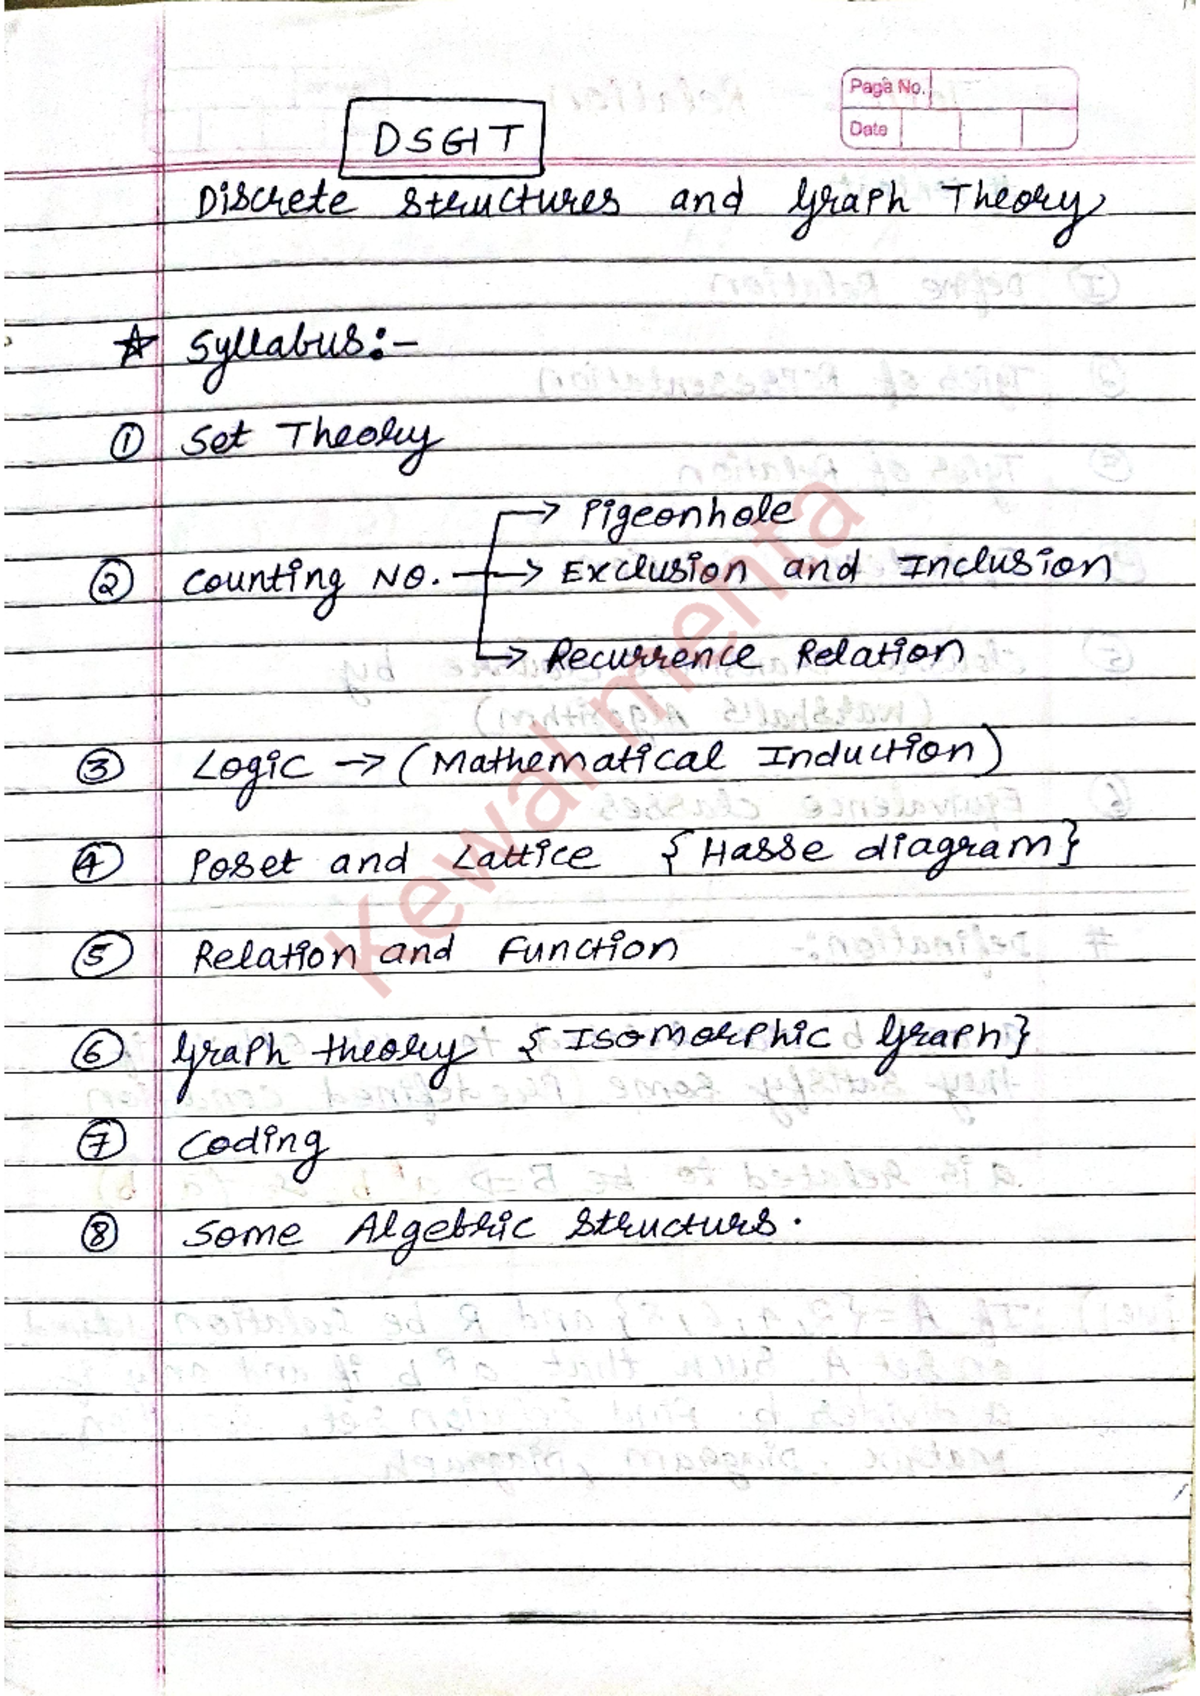 Page No.
Date
DSGIT
Discrete Structures and Graph Theory
☆ Syllabus:-
① Set Theory
→ Pigeonhole
② Counting NO. → Exclusion and Inclusion
→ Recurrence Relation
③ Logic → (Mathematical Induction)
④ Poset and Lattice {Hasse diagram}
⑤ Relation and Function
⑥ Graph theory {Isomorphic Graph}
⑦ Coding
⑧ Some Algebric Structurs.
Kewal menta